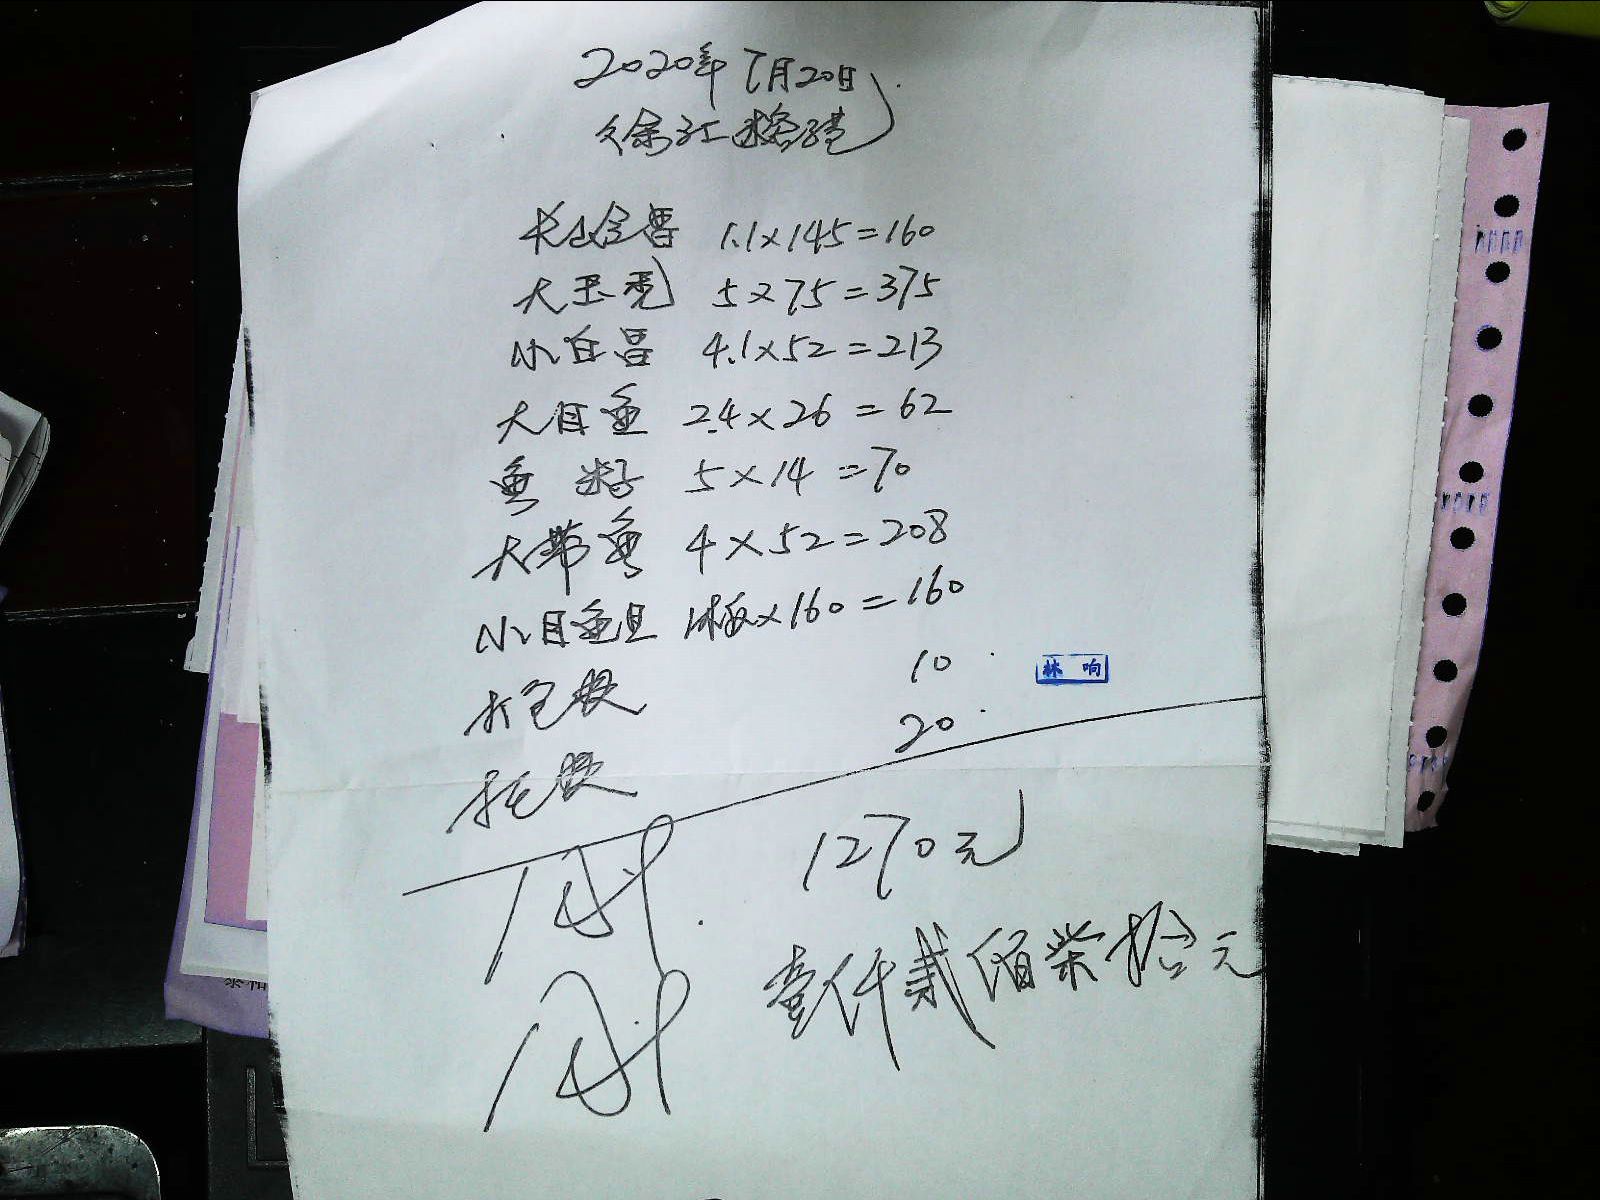 2020年7月20日
徐汇
1.1×145=160
大玉秃 5×75=375
小白昌 4.1×52=213
大目鱼 24×26=62
鱼籽 5×14=70
大带鱼 4×52=208
小目鱼旦 1板×160=160
打包费 10
托费 20
林响
1270元
壹仟贰佰柒拾元